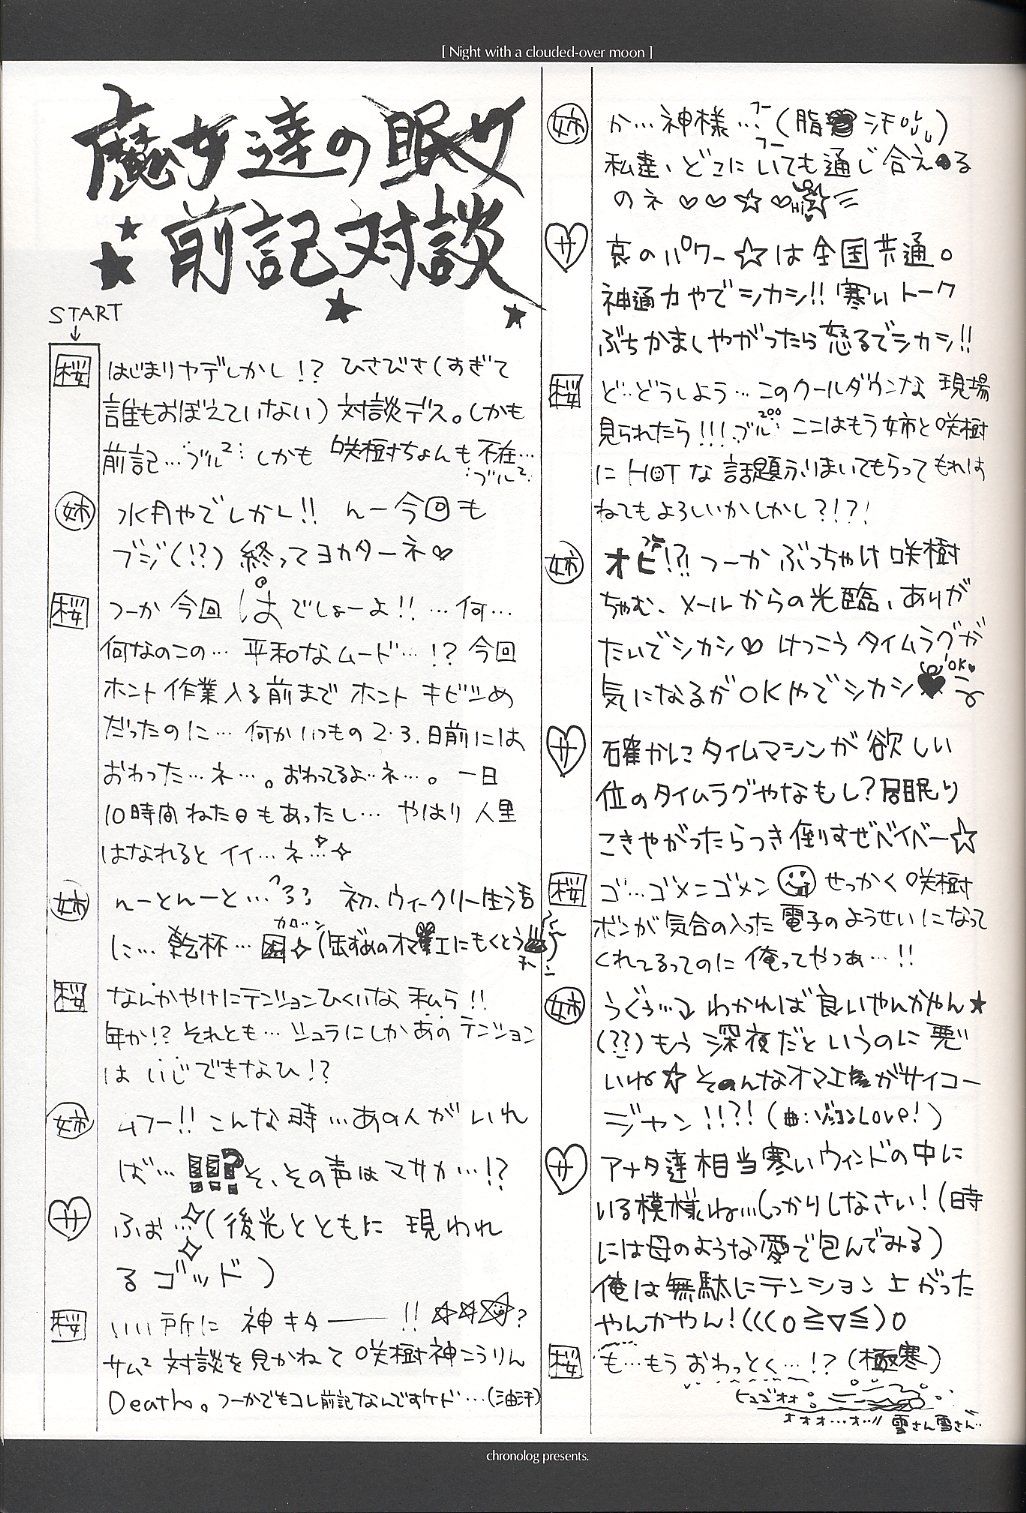 [ Night with a clouded-over moon ]
魔女達の眠り
前記対談
START
桜 はじまりヤデしかし!? ひさびさ(すぎて
誰もおぼえていない) 対談デス。しかも
前記…ブル² しかも 咲樹ちょんも不在…
ブル²
姉 水月やでしかし!! んー今回も
ブジ(!?) 終ってヨカターネ♡
桜 つーか 今回 は でしょーよ!! …何…
何なのこの… 平和なムード…!? 今回
ホント作業入る前まで ホント キビシめ
だったのに… 何かいつもの2・3.日前には
おわった…ネ…。おわってるよ…ネ…。一日
10時間ねた日もあったし… やはり 人里
はなれると イイ…ネ…
姉 んーとんーと… 初、ウィークリー生活
に… 乾杯…
桜 なんかやけにテンションひくいな 私ら!!
年か!? それとも… シュラにしかあの テンション
は いじできなひ!?
姉 ムフー!! こんな時…あの人がいれ
ば… !!!? そ、その声は マサカ…!?
サ ふぉ…(後光とともに 現われ
るゴッド)
桜 いい所に 神キター――!! ☆☆☆?
サム² 対談を見かねて 咲樹神こうりん
Death。つーかでもコレ前記なんですケド…(油汗)
姉 か…神様… (脂 汗)
フー
フー
私達、どこにいても通じ合える
のネ ♡♡☆♡ Hi
サ 哀のパワー☆は全国共通。
神通力やでシカシ!! 寒いトーク
ぶちかましやがったら怒るでシカシ!!
桜 ど…どうしよう…このクールダウンな 現場
見られたら!!! ブル… ここはもう姉と咲樹
に HOTな 話題ふりまいてもらってもれは
ねてもよろしいかしかし?!?!
姉 オビ!?! つーか ぶっちゃけ 咲樹
ちゃむ、メールからの光臨、ありが
たいでシカシ♡ けっこう タイムラグが
気になるが OKやでシカシ♥
'OK♥
サ 確かにタイムマシンが欲しい
位のタイムラグやなもし?居眠り
こきやがったらつき倒すぜベイベー☆
桜 ゴ…ゴメンゴメン せっかく咲樹
ポンが気合の入った 電子のようせいになって
くれてるってのに 俺ってやつぁ…!!
姉 うぐぅ… わかれば良いやんかやん★
(??)もう 深夜だというのに 悪
いね☆ そんなオマエがサイコー
ジャン!!?! (曲:ゾッコンLove!)
サ アナタ達相当寒いウィンドの中に
いる模様ね…しっかりしなさい!(時
には母のような愛で包んでみる)
俺は無駄にテンション上がった
やんかやん!(((o≧▽≦)o
桜 も…もう おわっとく…!? (極寒)
ヒュゴオォ
オオオ…オ…!! 雪さん雪さん…
chronolog presents.